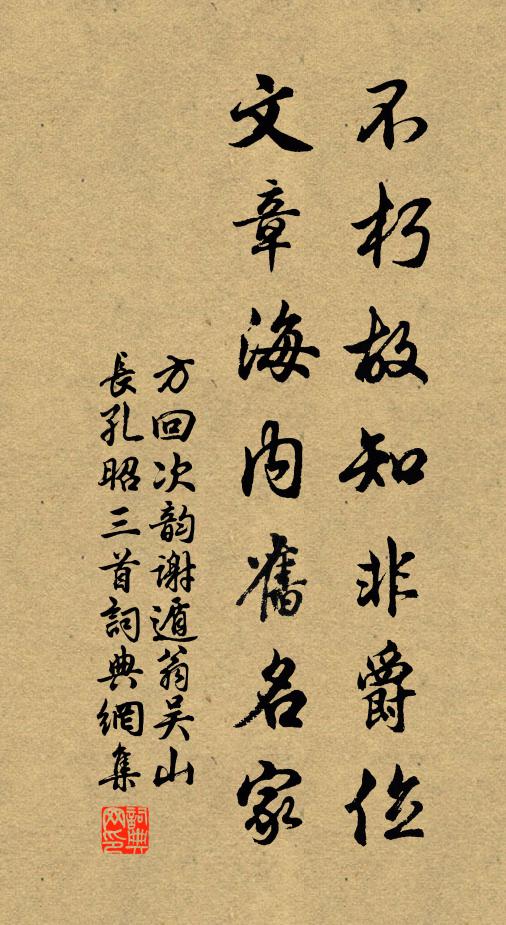 不朽故知非爵位
文章海内舊名家
方回次韵謝遁翁吴山
長孔昭三首詞典網集
詞典网印